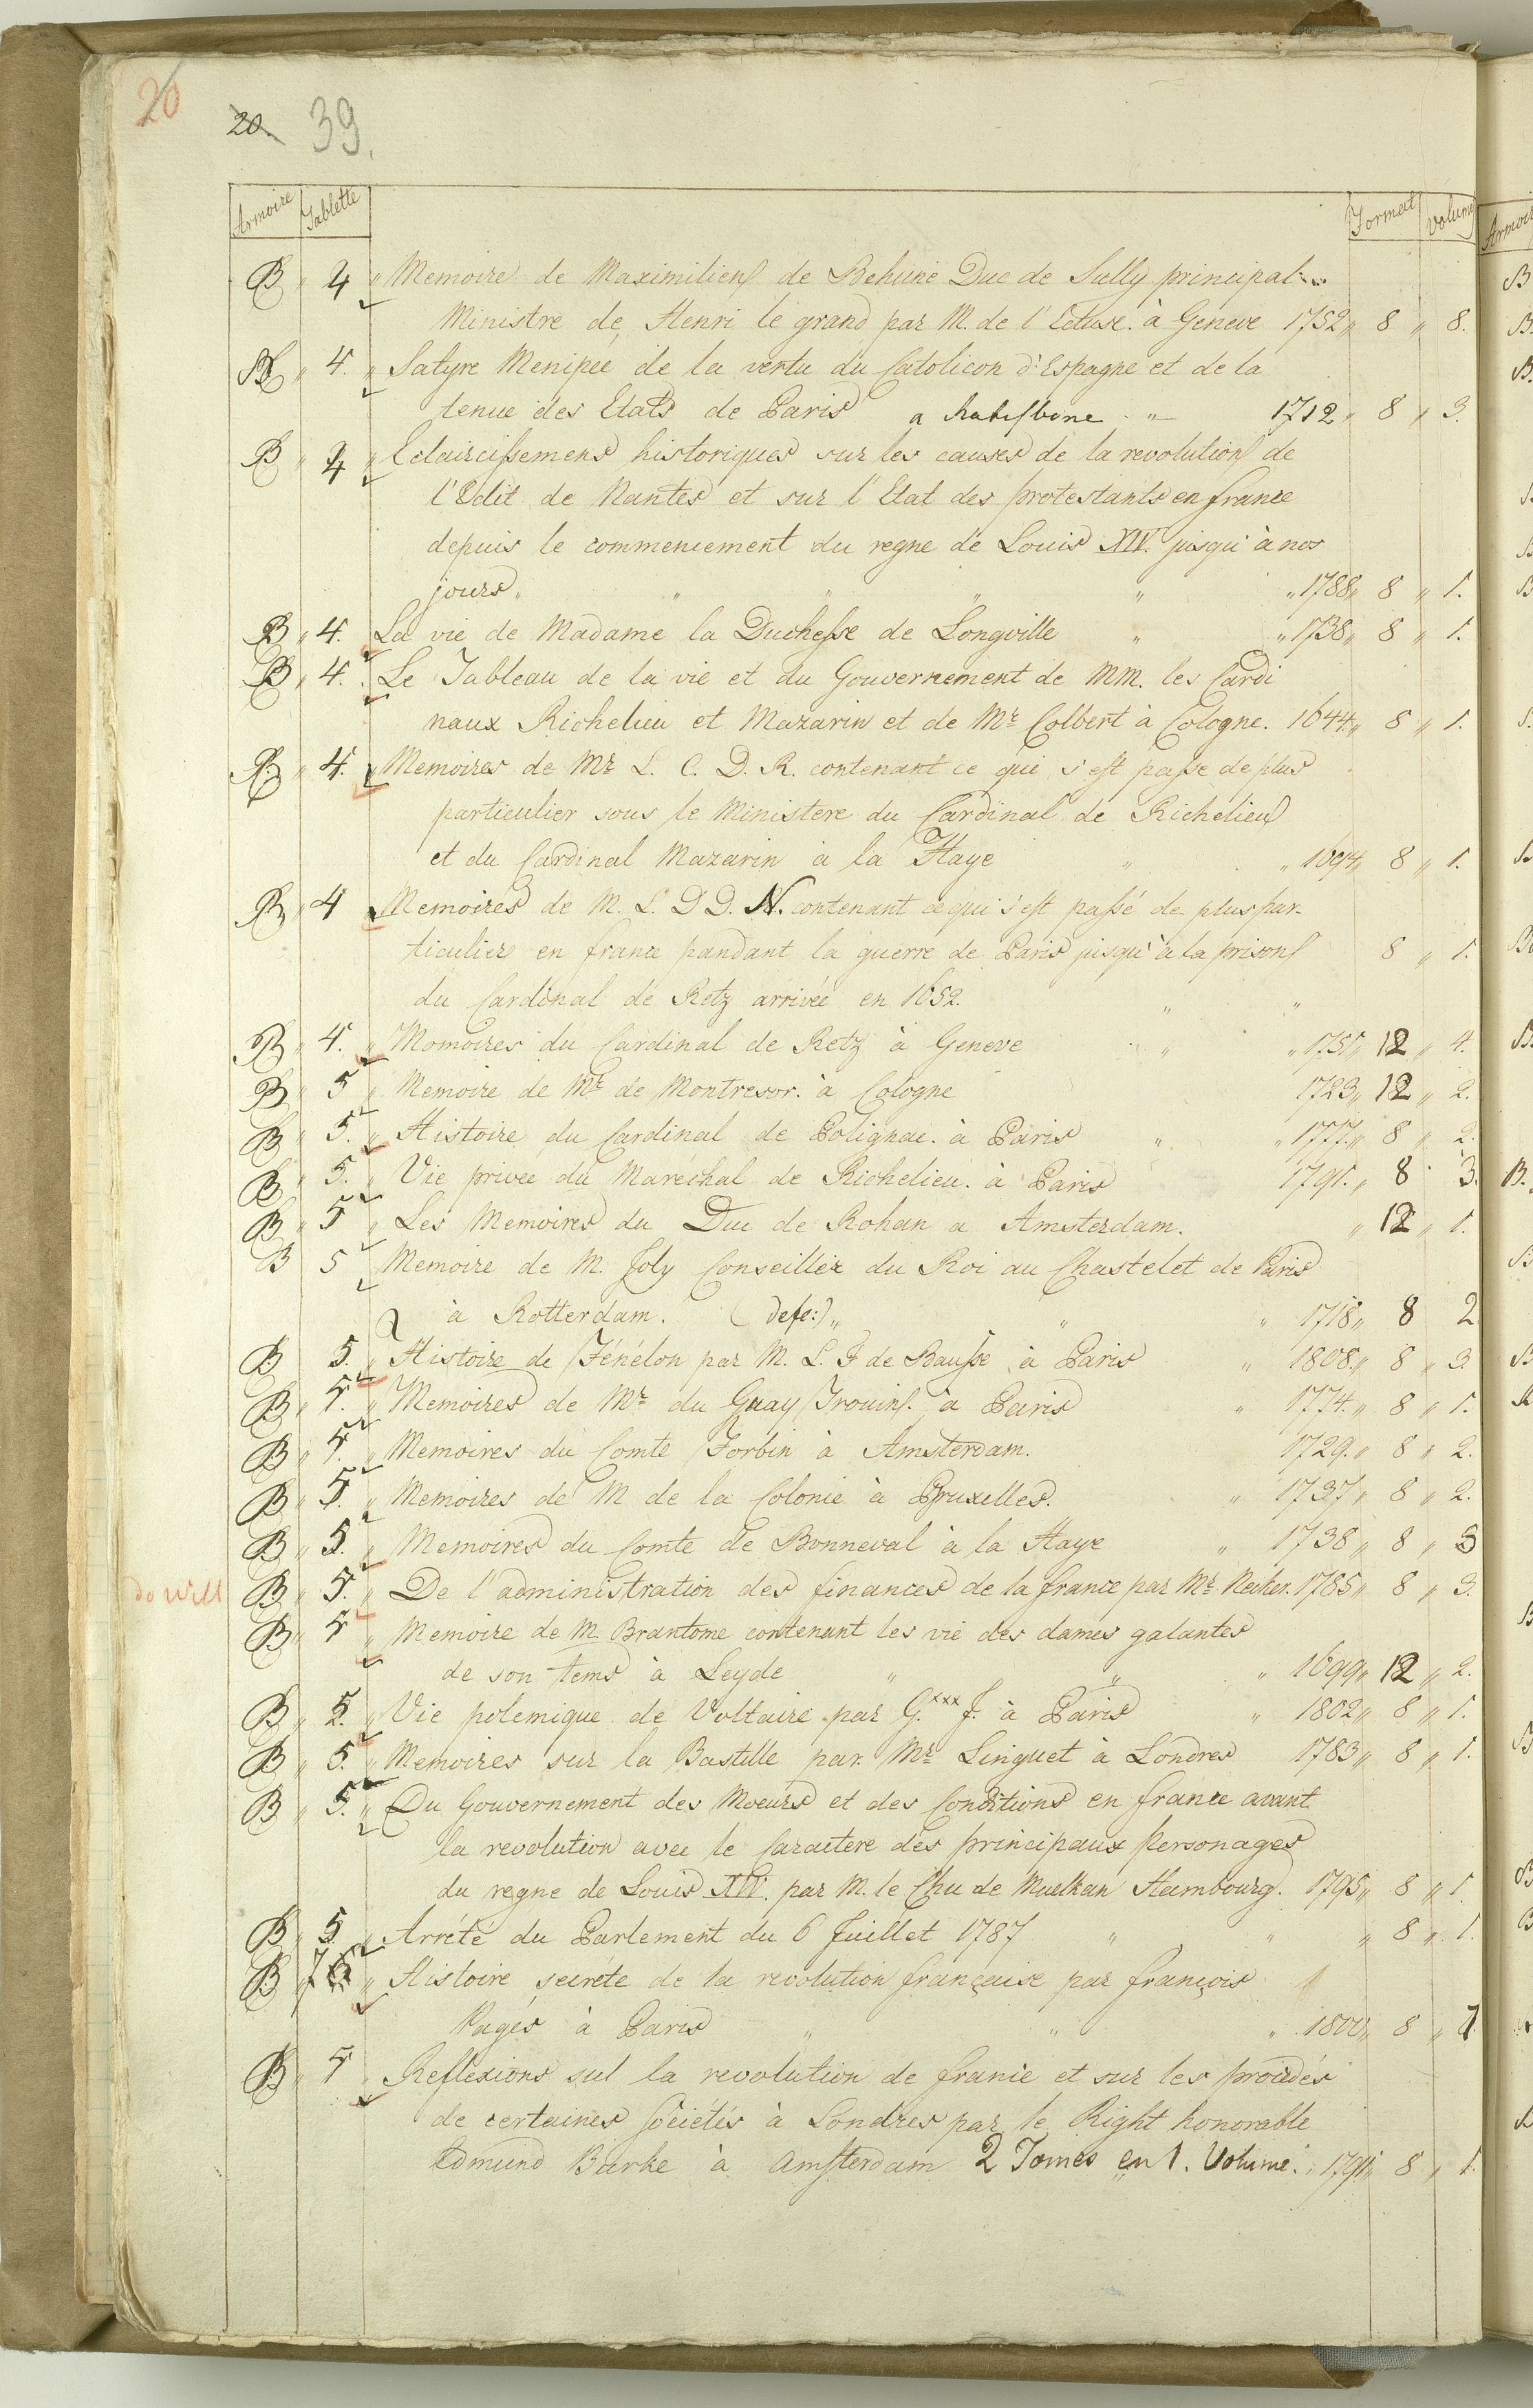 20
20. 39.
Armoire Tablette Format Volume
B " 4 " Memoires de Maximilien de Bethune Duc de Sully principal
Ministre de Henri le grand par M. de l'Ecluse. à Geneve 1752 " 8 " 8.
B " 4. " Satyre Menipée de la vertu du Catolicon d'Espagne et de la
tenue des Etats de Paris a Ratisbone " 1712 " 8 " 3.
B " 4 " Eclaircissemens historiques sur les causes de la revolution de
l'Edit de Nantes et sur l'Etat des protestants en france
depuis le commencement du regne de Louis XIV. jusqu'à nos
jours " " " " " " 1788 " 8 " 1.
B " 4. La vie de Madame la Duchesse de Longville " " 1738 " 8 " 1.
B " 4. Le Tableau de la vie et du Gouvernement de MM. les Cardi
naux Richelieu et Mazarin et de Mr Colbert à Cologne. 1644 " 8 " 1.
B " 4. " Memoires de Mr L. C. D. R. contenant ce qui s'est passe de plus
particulier sous le Ministere du Cardinal de Richelieu
et du Cardinal Mazarin à la Haye " " 1694 " 8 " 1.
B " 4 " Memoires de M. L. D D. N. contenant ce qui s'est passé de plus par-
ticulier en france pandant la guerre de Paris jusqu'à la prison 8 " 1.
du Cardinal de Retz arrivée en 1652. " "
B " 4. " Momoires du Cardinal de Retz à Geneve " " 1751 " 12 " 4.
B " 5 " Memoire de Mr de Montresor. à Cologne 1723 " 12 " 2.
B " 5. " Histoire du Cardinal de Polignac. à Paris " " 1777 " 8 " 2.
B " 5. " Vie privee du Maréchal de Richelieu. à Paris 1791. " 8 " 3.
B " 5 " Les Memoires du Duc de Rohan a Amsterdam. " 12 " 1.
B 5 Memoire de M. Joly Conseiller du Roi au Chastelet de Paris
à Rotterdam. (defe:) " " " 1718 " 8 2
B 5. " Histoire de Fénélon par M. L. F de Bausse à Paris " 1808 " 8 " 3.
B " 5. " Memoires de Mr du Guay Trouin. à Paris " 1774. " 8 " 1.
B " 5. " Memoires du Comte Forbin à Amsterdam. 1729. " 8 " 2.
B " 5. " Memoires de M de la Colonie à Bruxelles. " 1737 " 8 " 2.
B " 5. " Memoires du Comte de Bonneval à la Haye " 1738 " 8 " 3
do will B " 5. " De l'administration des finances de la france par Mr Necker. 1785 " 8 " 3.
B " 5 " Memoire de M. Brantome contenant les vie des dames galantes
de son tems à Leyde " " " 1699 " 12 " 2.
B " 5. " Vie polemique de Voltaire par G.xxx J. à Paris " 1802 " 8 " 1.
B " 5. " Memoires sur la Bastille par Mr Linguet à Londres 1783 " 8 " 1.
B " 5. " Du Gouvernement des Moeurs et des Conditions en france avant
la revolution avec le Caractere des principaux Personages
du regne de Louis XVI. par M. le Chu de Muelkan Hambourg. 1795 " 8 " 1.
B " 5 " Arrété du Parlement du 6 Juillet 1787 " " " 8 " 1.
B " 76 " Histoire secréte de la revolution française par françois
Pagés à Paris " " " 1800 " 8 " 7
B " 5 " Reflexions sul la revolution de france et sur les procédés
de certaines Sociétés à Londres par le Right honorable
Edmund Burke à Amsterdam 2 Tomes en 1. Volume. " 1791 " 8 " 1.